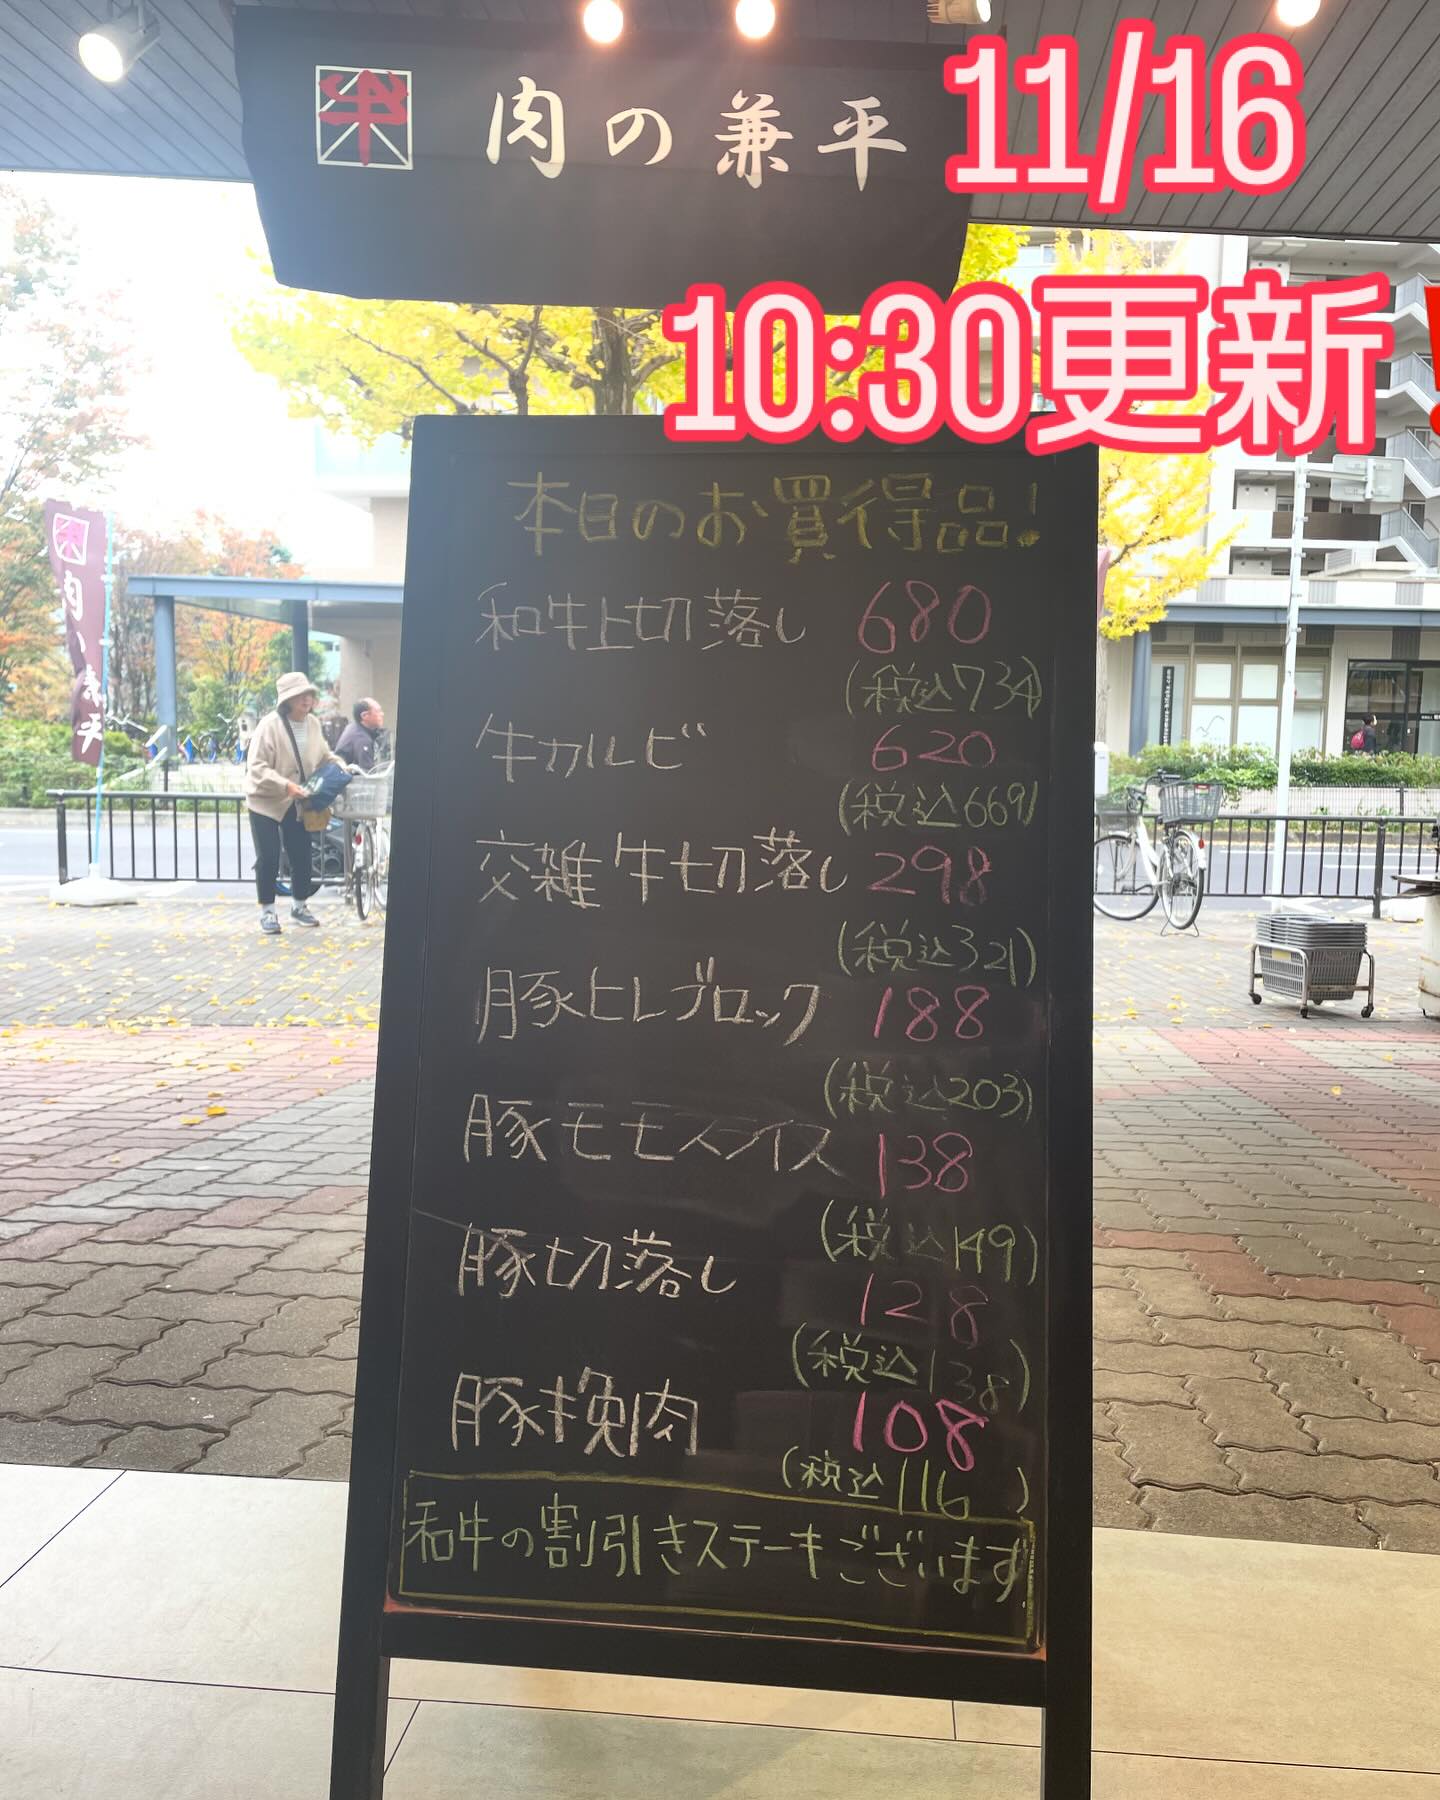 牛
肉の兼平
11/16
10:30更新!
肉の兼平
本日のお買得品!
和牛上切落し 680
(税込734)
牛カルビ 620
(税込669)
交雑牛切落し 298
(税込321)
豚ヒレブロック 188
(税込203)
豚モモスライス 138
(税込149)
豚切落し 128
(税込138)
豚挽肉 108
(税込116)
和牛の割引きステーキございます